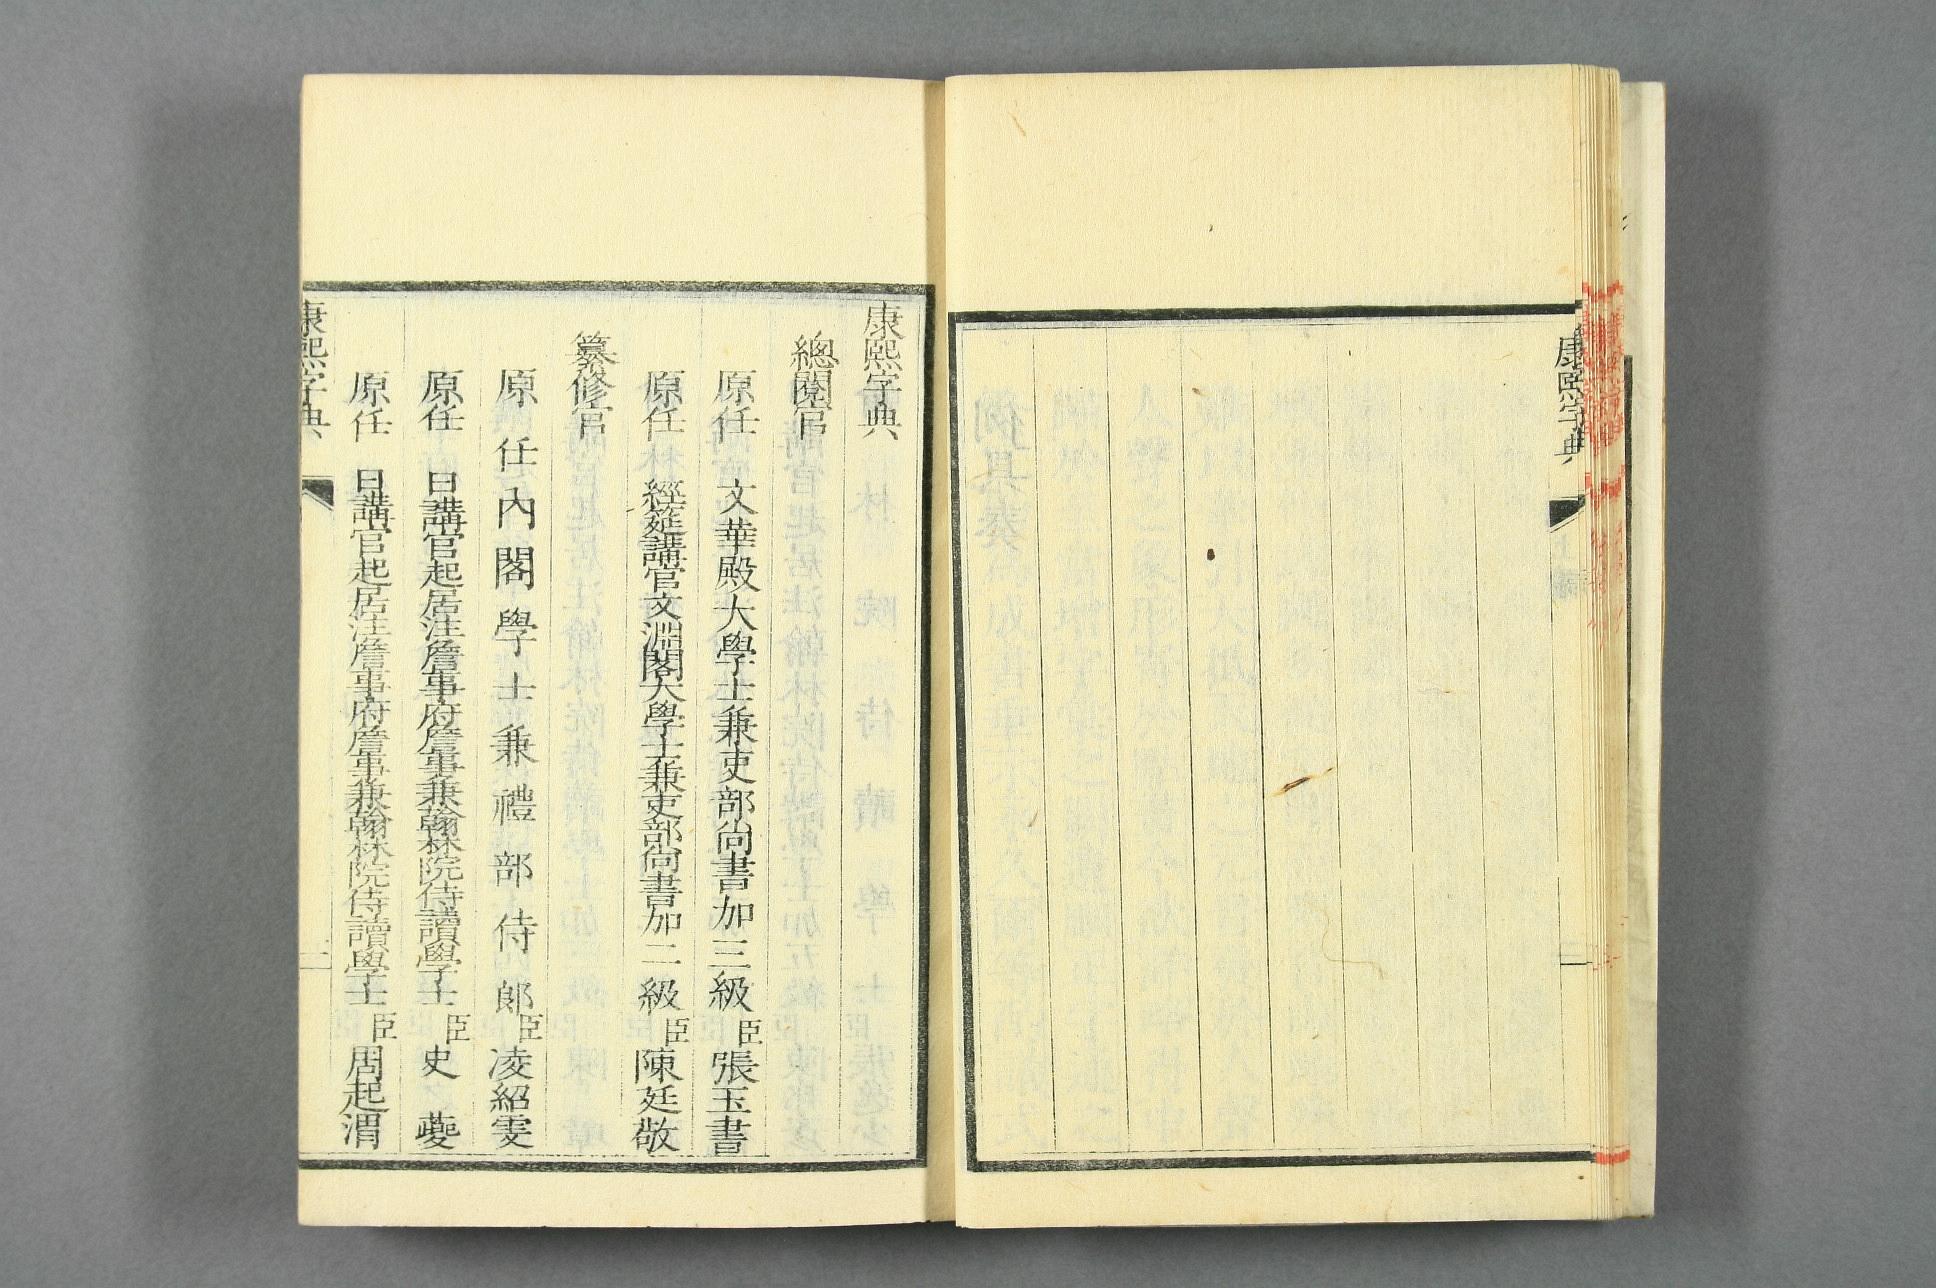 康熙字典
康熙字典
總閱官
原任文華殿大學士兼吏部尚書加三級臣張玉書
原任經筵講官文淵閣大學士兼吏部尚書加二級臣陳廷敬
纂修官
原任內閣學士兼禮部侍郎臣凌紹雯
原任日講官起居注詹事府詹事兼翰林院侍讀學士臣史夔
原任日講官起居注詹事府詹事兼翰林院侍讀學士臣周起渭
康熙字典